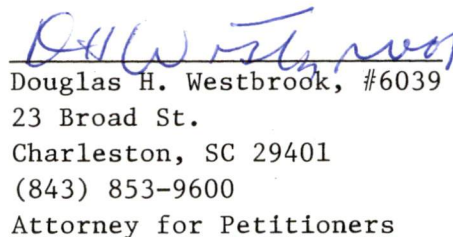 DH Westbrook
Douglas H. Westbrook, #6039
23 Broad St.
Charleston, SC 29401
(843) 853-9600
Attorney for Petitioners